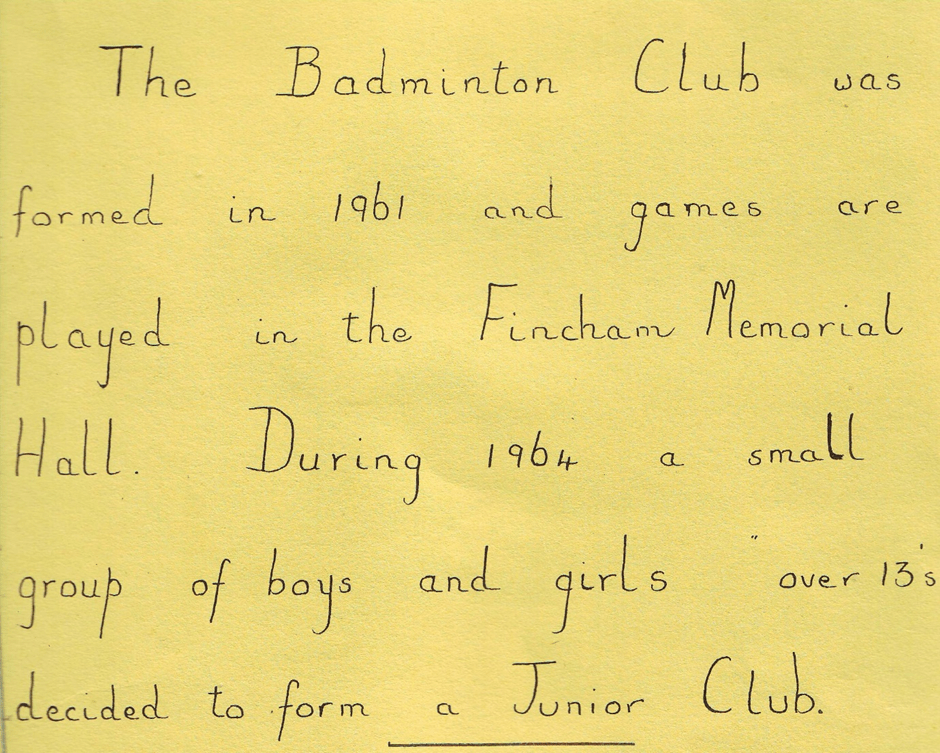 The Badminton Club was
formed in 1961 and games are
played in the Fincham Memorial
Hall. During 1964 a small
group of boys and girls "over 13's
decided to form a Junior Club.